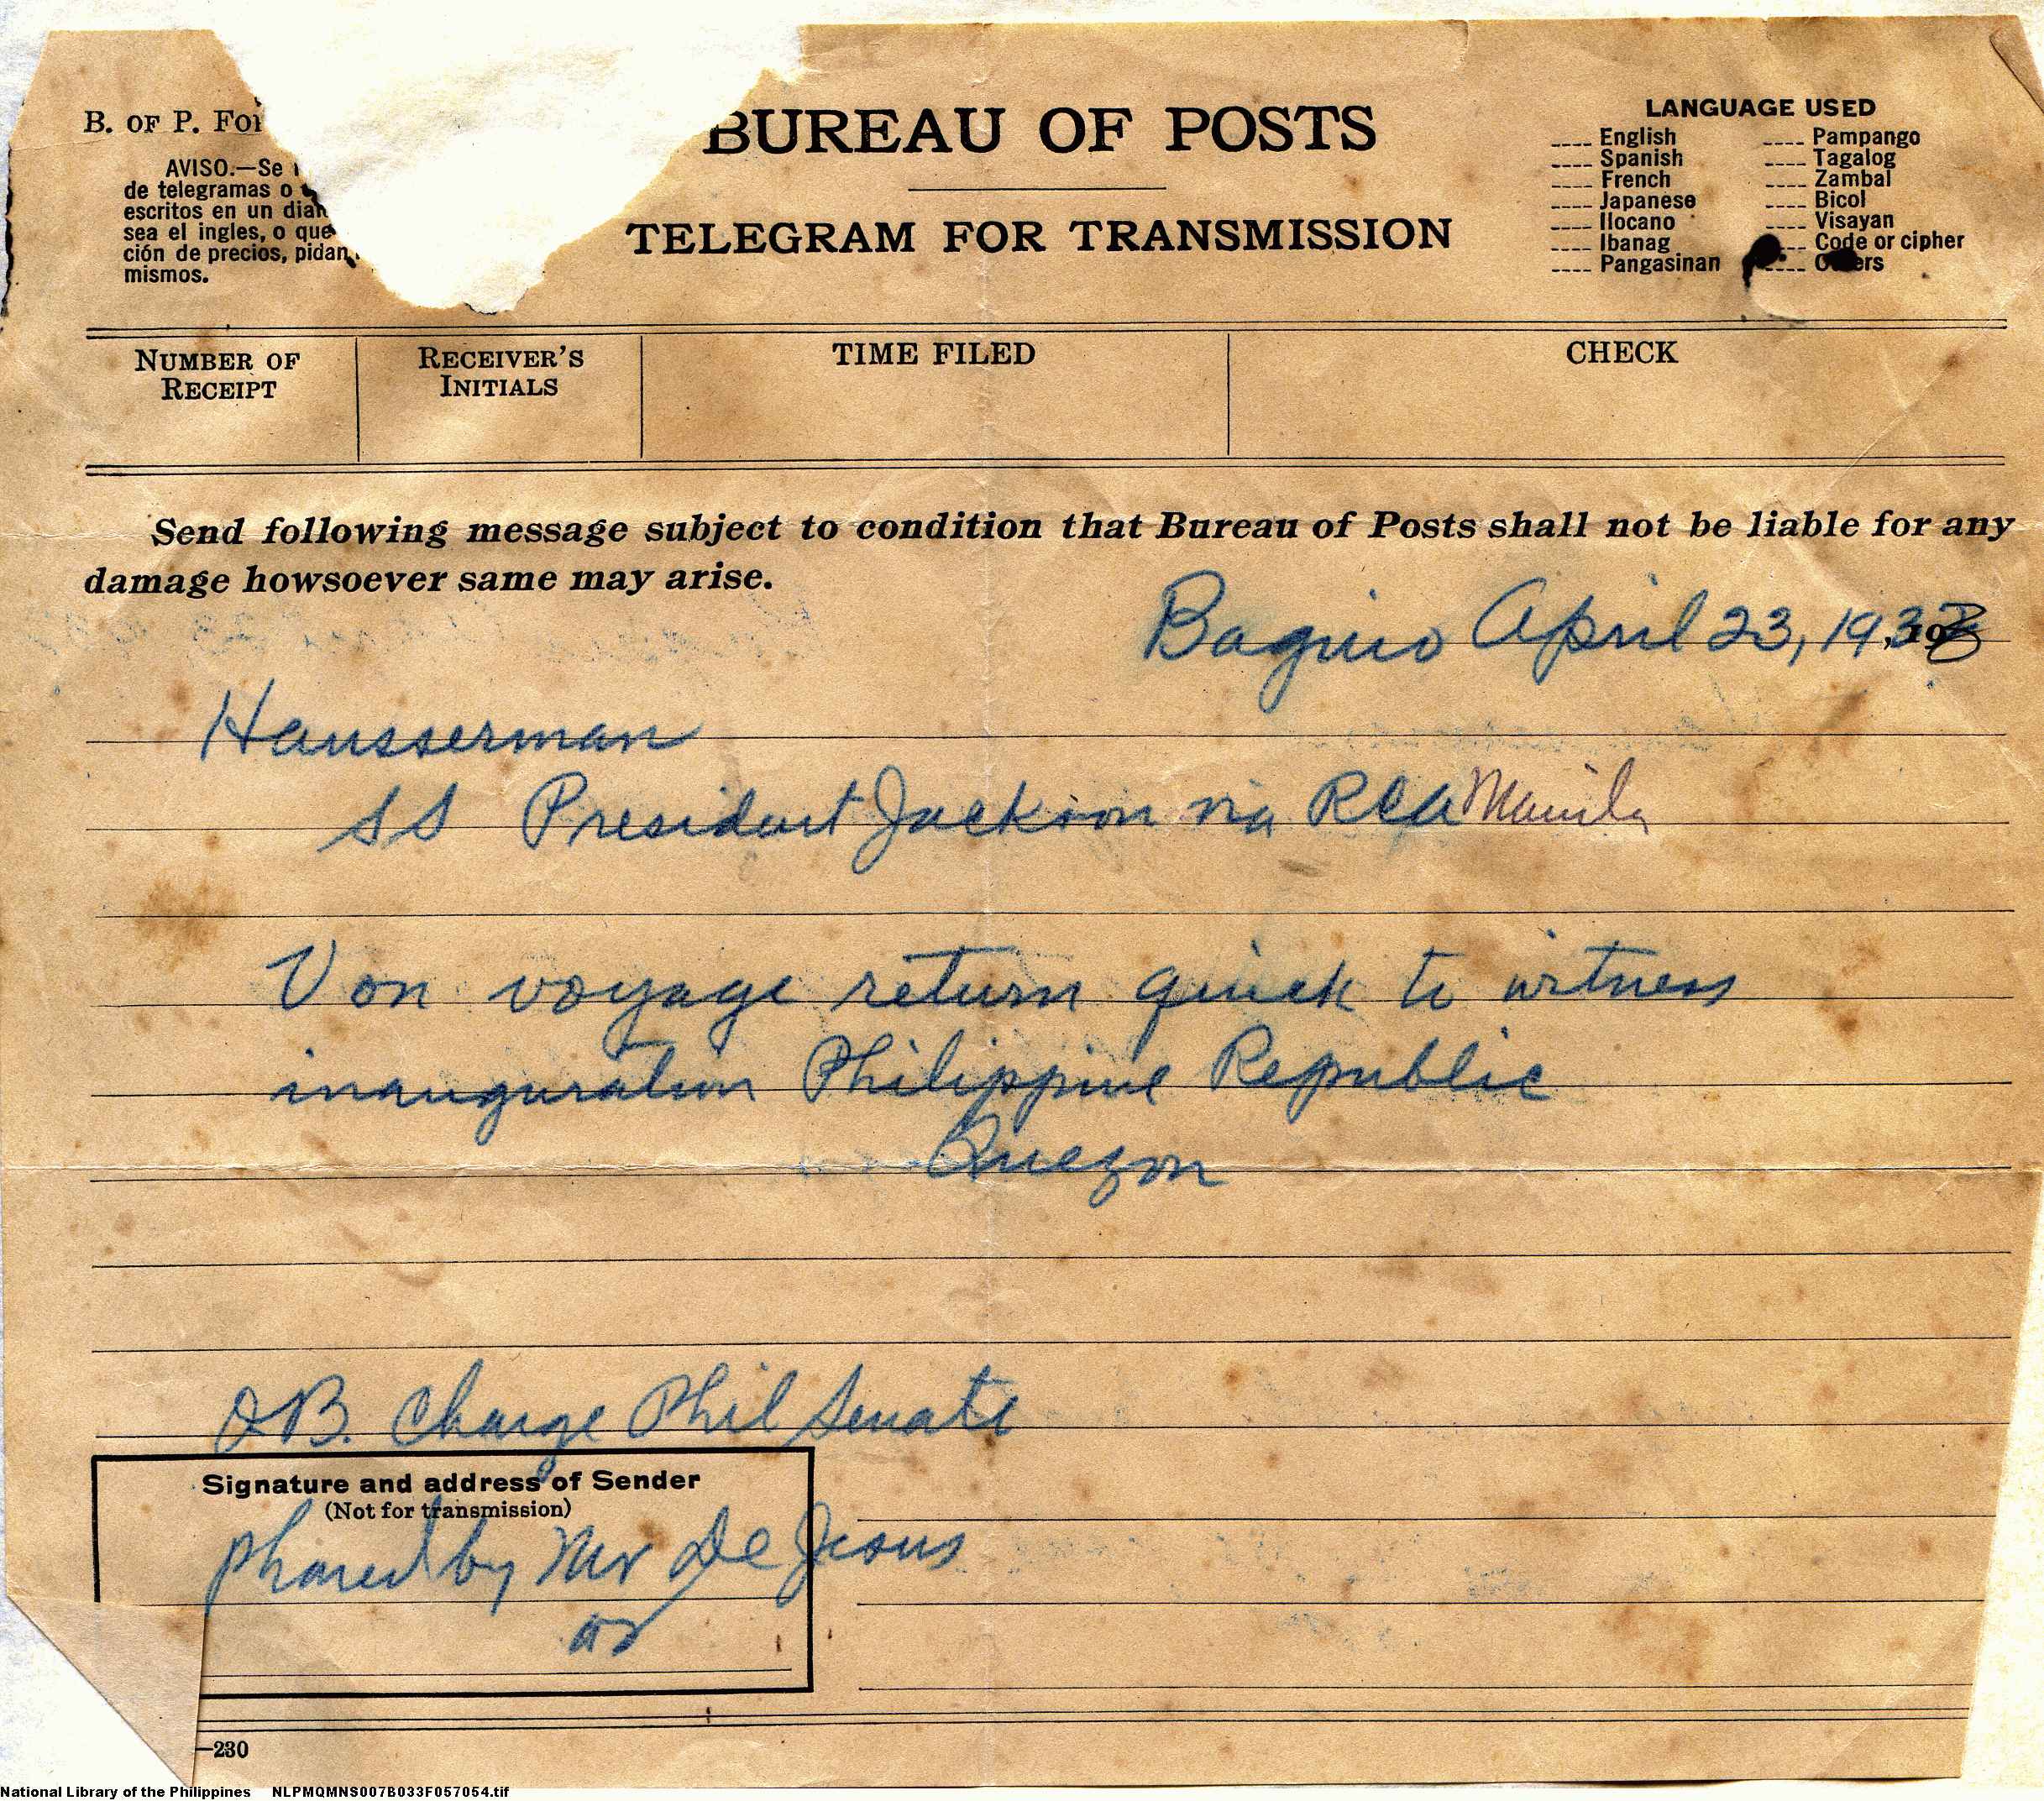 B. OF P. For
AVISO.—Se
de telegramas o
escritos en un diar
sea el ingles, o que
ción de precios, pidan
mismos.
BUREAU OF POSTS
TELEGRAM FOR TRANSMISSION
LANGUAGE USED
---- English ---- Pampango
---- Spanish ---- Tagalog
---- French ---- Zambal
---- Japanese ---- Bicol
---- Ilocano ---- Visayan
---- Ibanag ---- Code or cipher
---- Pangasinan ---- Others
NUMBER OF RECEIPT
RECEIVER'S INITIALS
TIME FILED
CHECK
Send following message subject to condition that Bureau of Posts shall not be liable for any
damage howsoever same may arise.
Baguio April 23,
Hausserman
SS President Jackson via RCA Manila
Von voyage return quick to witness
inauguration Philippine Republic
Quezon
OB. Charge Phil Senate
Signature and address of Sender
(Not for transmission)
phoned by Mr De Jesus
—230
National Library of the Philippines NLPMQMNS007B033F057054.tif